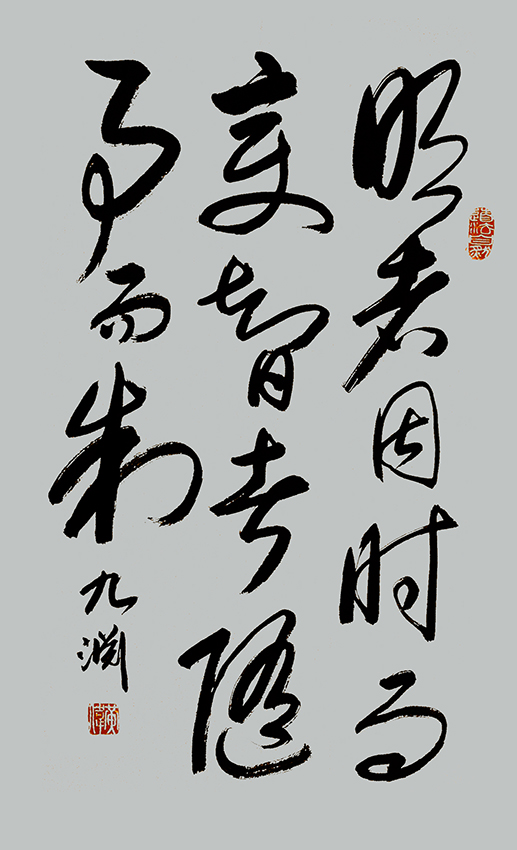 明者因时而
变智者随
事而制
九渊